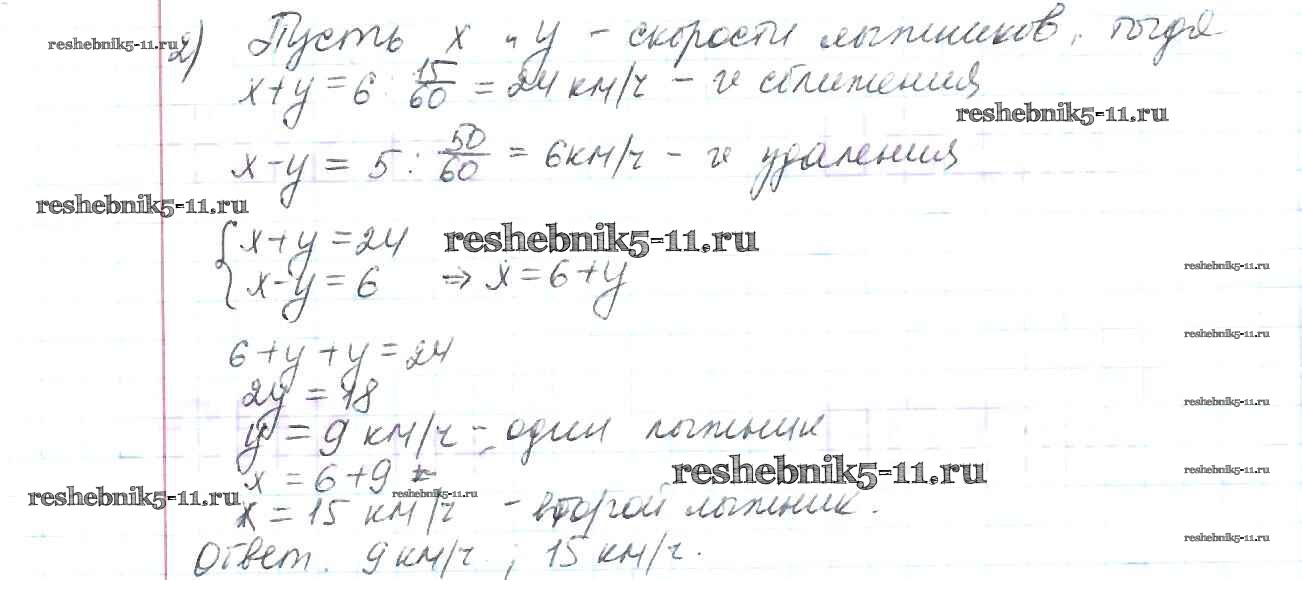 reshebnik5-11.ru
2) Пусть x и y – скорости лыжников, тогда
x+y = 6 : 15/60 = 24 км/ч – v сближения
reshebnik5-11.ru
x-y = 5 : 50/60 = 6км/ч – v удаления
reshebnik5-11.ru
{x+y=24
reshebnik5-11.ru
x-y=6 ⇒ x=6+y
reshebnik5-11.ru
reshebnik5-11.ru
6+y+y=24
2y=18
reshebnik5-11.ru
y=9 км/ч – один лыжник
x=6+9
reshebnik5-11.ru
reshebnik5-11.ru
reshebnik5-11.ru
reshebnik5-11.ru
x=15 км/ч – второй лыжник.
reshebnik5-11.ru
Ответ. 9км/ч ; 15 км/ч.